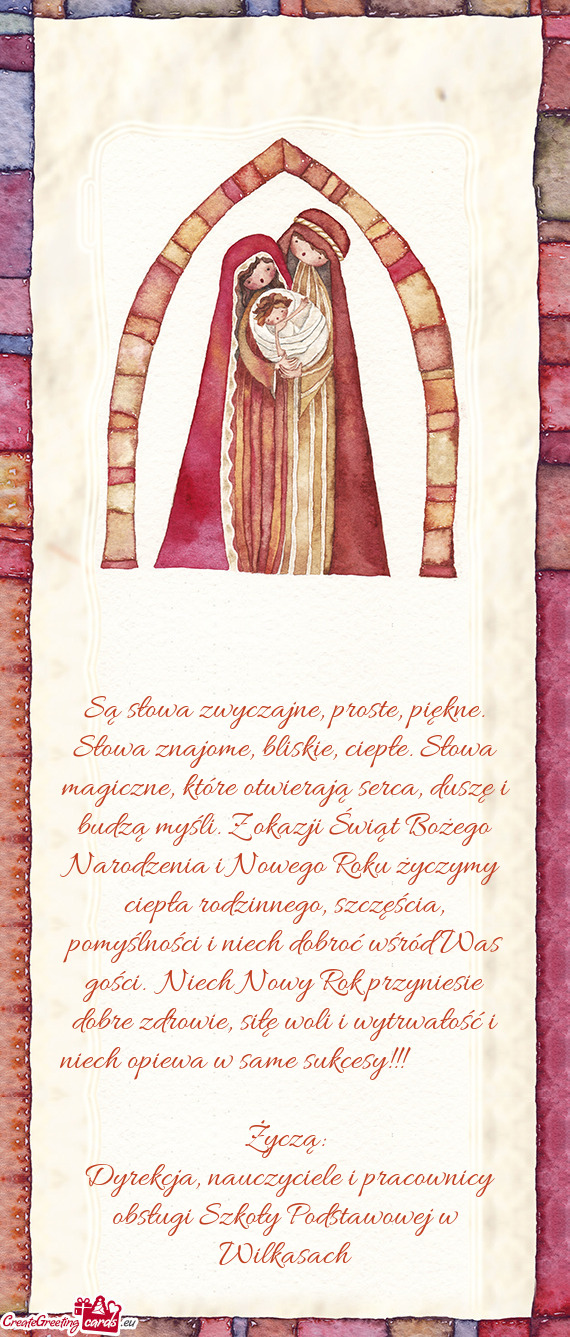 Są słowa zwyczajne, proste, piękne.
Słowa znajome, bliskie, ciepłe. Słowa
magiczne, które otwierają serca, duszę i
budzą myśli. Z okazji Świąt Bożego
Narodzenia i Nowego Roku życzymy
ciepła rodzinnego, szczęścia,
pomyślności i niech dobroć wśród Was
gości. Niech Nowy Rok przyniesie
dobre zdrowie, siłę woli i wytrwałość i
niech opiewa w same sukcesy!!!
Życzą:
Dyrekcja, nauczyciele i pracownicy
obsługi Szkoły Podstawowej w
Wilkasach
CreateGreeting cards .eu